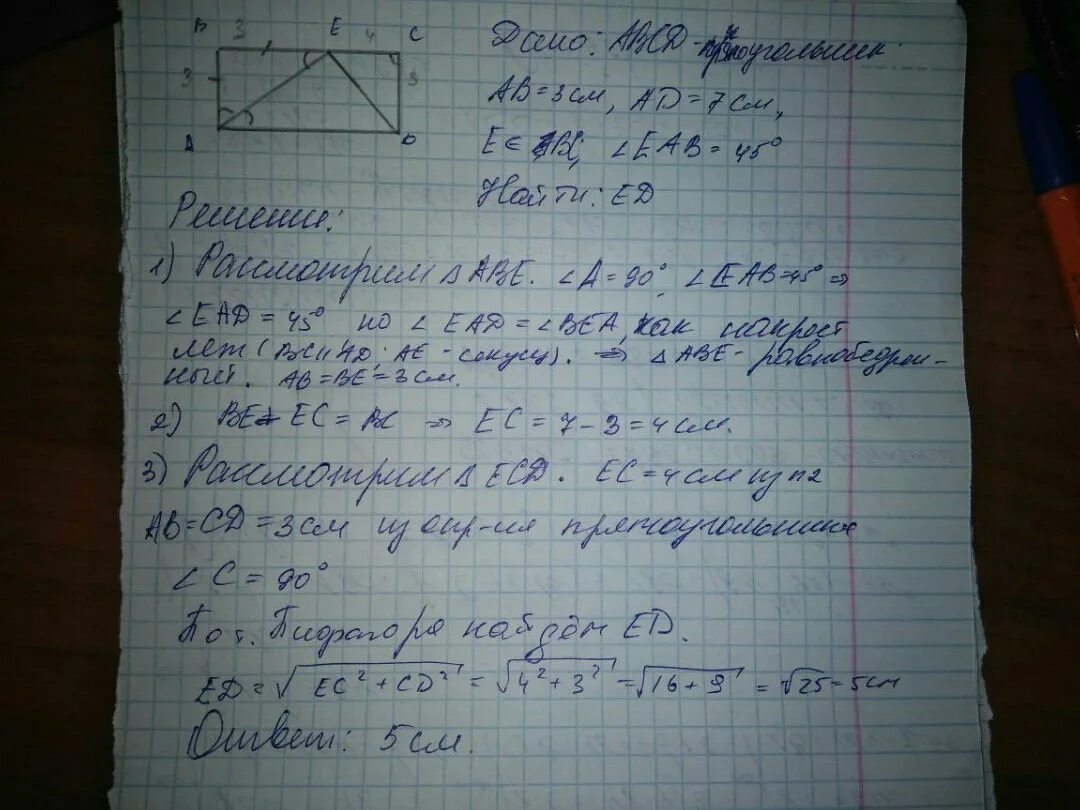 B 3 E 4 C
3 3
A D
Дано: ABCD - прямоугольник.
AB = 3 см, AD = 7 см,
E ∈ BC, ∠EAB = 45°
Найти: ED
Решение:
1) Рассмотрим △ ABE. ∠A = 90°, ∠EAB = 45° ⇒
∠EAD = 45° но ∠ EAD = ∠BEA, как накрест
леж (BC || AD, AE - секущ). ⇒ △ ABE - равнобедрен-
ный. AB = BE = 3 см.
2) BE + EC = BC ⇒ EC = 7 - 3 = 4 см.
3) Рассмотрим △ ECD. EC = 4 см из п2
AB = CD = 3 см из опр-ия прямоугольника
∠ C = 90°
По т. Пифагора найдём ED.
ED = √EC² + CD² = √4² + 3² = √16 + 9 = √25 = 5 см
Ответ: 5 см.